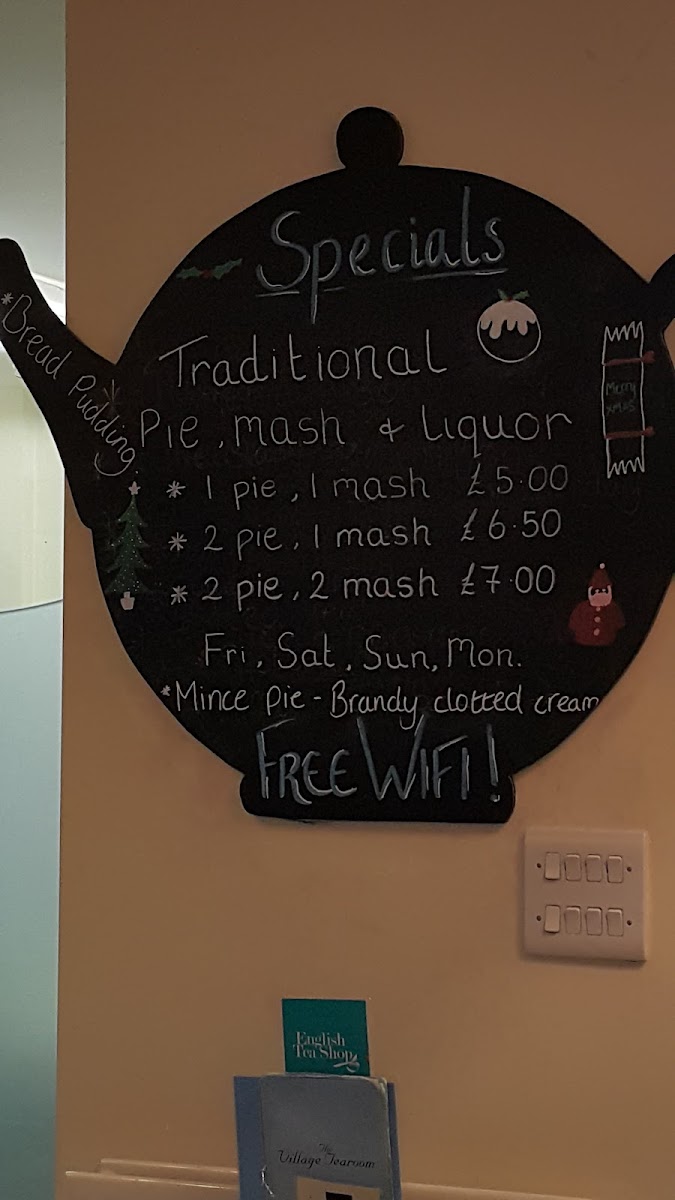 Specials
*Bread Pudding.
Traditional
Pie, mash & Liquor
Merry
xmas
* 1 pie, 1 mash £5.00
* 2 pie, 1 mash £6.50
* 2 pie, 2 mash £7.00
Fri, Sat, Sun, Mon.
*Mince Pie - Brandy clotted cream
FREE WIFI!
English
Tea Shop
The
Village Tearoom